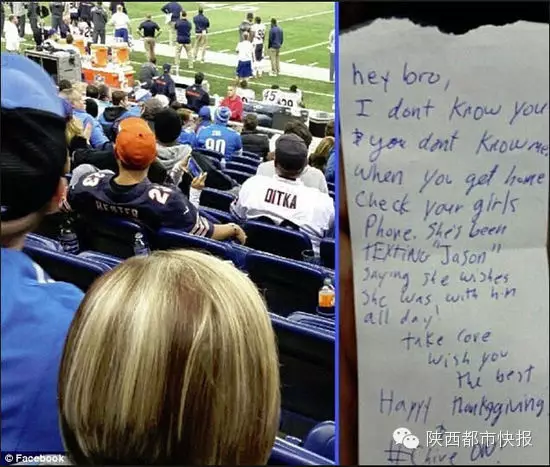 HESTER
23
DITKA
90
45
hey bro,
I dont know you
& you dont know me
When you get home
Check your girls
Phone. She's been
TEXTING "Jason"
Saying she wishes
She was with him
all day!
take care
wish you
the best
Happy Thanksgiving
#Chive ON!
© Facebook
陕西都市快报